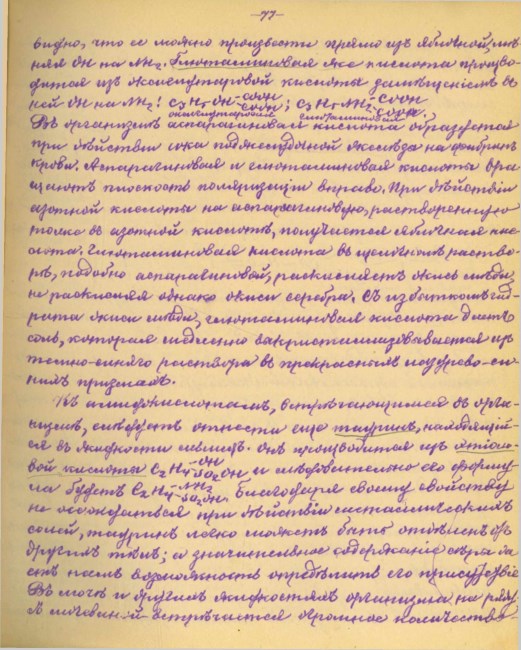 -77-
видно, что ее можно произвести прямо из яблочной, мѣ-
няя OH на NH₂. Глютаминовая же кислота произво-
дится из оксиглутаровой кислоты замѣщеніемъ въ
ней OH на NH₂: C₃H₅OH-COOH COOH; C₃H₅NH₂ COOH COOH.
оксиглутаровая глютаминовая
Въ организмѣ аспарагиновая кислота образуется
при дѣйствіи сока поджелудочной желѣза на фибринъ
крови. Аспарагиновая и глютаминовая кислоты вра-
щаютъ плоскость поляризаціи вправо. При дѣйствіи
азотной кислоты на аспарагиновую, растворенную
только въ азотной кислотѣ, получается яблочная кис-
лота. Глютаминовая кислота въ щелочномъ раство-
рѣ, подобно аспарагиновой, раскисляетъ окись мѣди,
не раскисляя однако окиси серебра. Съ избыткомъ гид-
рата окиси мѣди, глютаминовая кислота даетъ
соль, которая медленно выкристаллизовывается из
темно-синяго раствора въ прекрасныхъ лазурево-си-
нихъ призмахъ.
Къ амидокислотамъ, встрѣчающимся въ орга-
низмѣ, слѣдуетъ отнести еще тауринъ, находящій-
ся въ жидкости мышцъ. Онъ производится из этіо-
вой кислоты C₂H₄-OH -SO₂OH и слѣдовательно его форму-
ла будетъ C₂H₄-NH₂ -SO₂OH. Благодаря своему свойству
не осаждаться при дѣйствіи металлическихъ
солей, тауринъ легко можетъ быть отдѣленъ отъ
другихъ тѣлъ; а значительное содержаніе сѣры да-
етъ намъ возможность опредѣлить его присутствіе
Въ мочѣ и другихъ жидкостяхъ организма на ряду
съ мочевин-й встрѣчается огромное количество